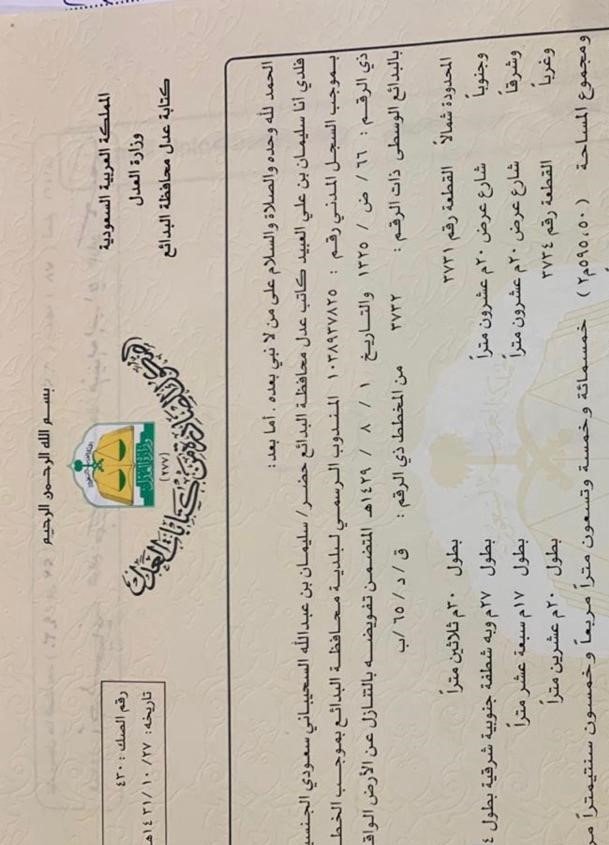 بسم الله الرحمن الرحيم
المملكة العربية السعودية
وزارة العدل
كتابة عدل محافظة البدائع
(٢٧٧)
وزارة العدل
رقم الصك : ٤٣٠
تاريخه: ٢٧/ ١٠ /١٤٣١هـ
الحمد لله وحده والصلاة والسلام على من لا نبي بعده . أما بعد :
فلدي أنا سليمان بن علي العبيد كاتب عدل محافظة البدائع حضر/ سليمان بن عبدالله السحيباني سعودي الجنسي
بموجب السجل المدني رقم : ١٠٣٨٩٣٧٨٢٥ المندوب الرسمي لبلدية محافظة البدائع بموجب الخط
ذي الرقم : ٦٦ / ض / ١٣٢٥ والتاريخ ١ / ٨ / ١٤٢٩هـ المتضمن تفويضه بالتنازل عن الأرض الواق
بالبدائع الوسطى ذات الرقم : ٣٧٣٢ من المخطط ذي الرقم : ق / د / ٦٥ /ب
المحدودة شمالاً القطعة رقم ٣٧٣١ بطول ٣٠م ثلاثين متراً
وجنوباً شارع عرض ٢٠م عشرون متراً بطول ٢٧م وبه شطفة جنوبية شرقية بطول ٤
وشرقاً شارع عرض ٢٠م عشرون متراً بطول ١٧م سبعة عشر متراً
وغرباً القطعة رقم ٣٧٣٤ بطول ٢٠م عشرين متراً
ومجموع المساحة (٥٩٥,٥٠م٢) خمسمائة وخمسة وتسعون متراً مربعاً وخمسون سنتيمتراً مر